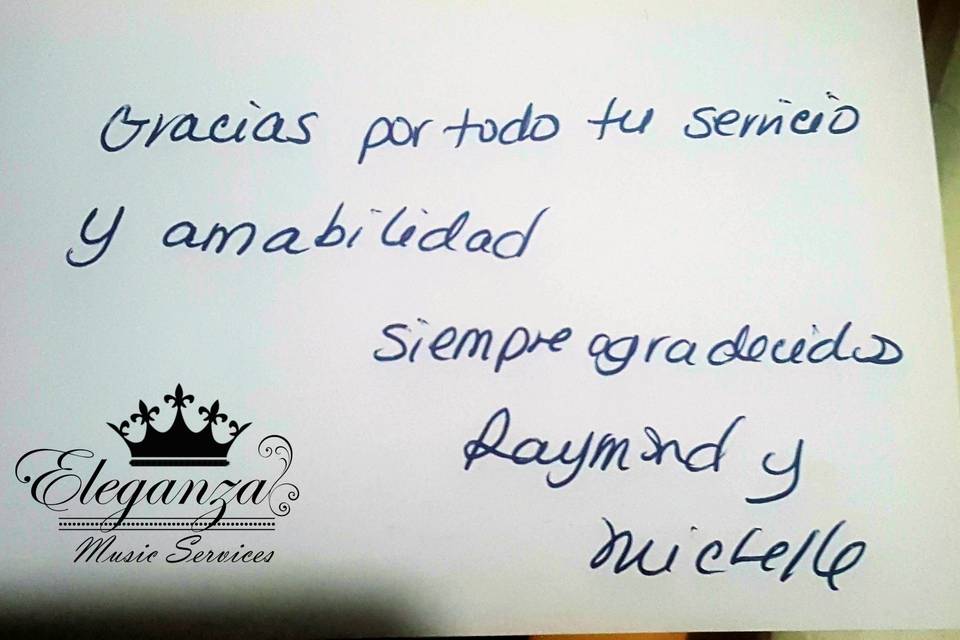 Gracias por todo tu servicio
y amabilidad
siempre agradecidos
Raymond y
Michelle
Eleganza
Music Services